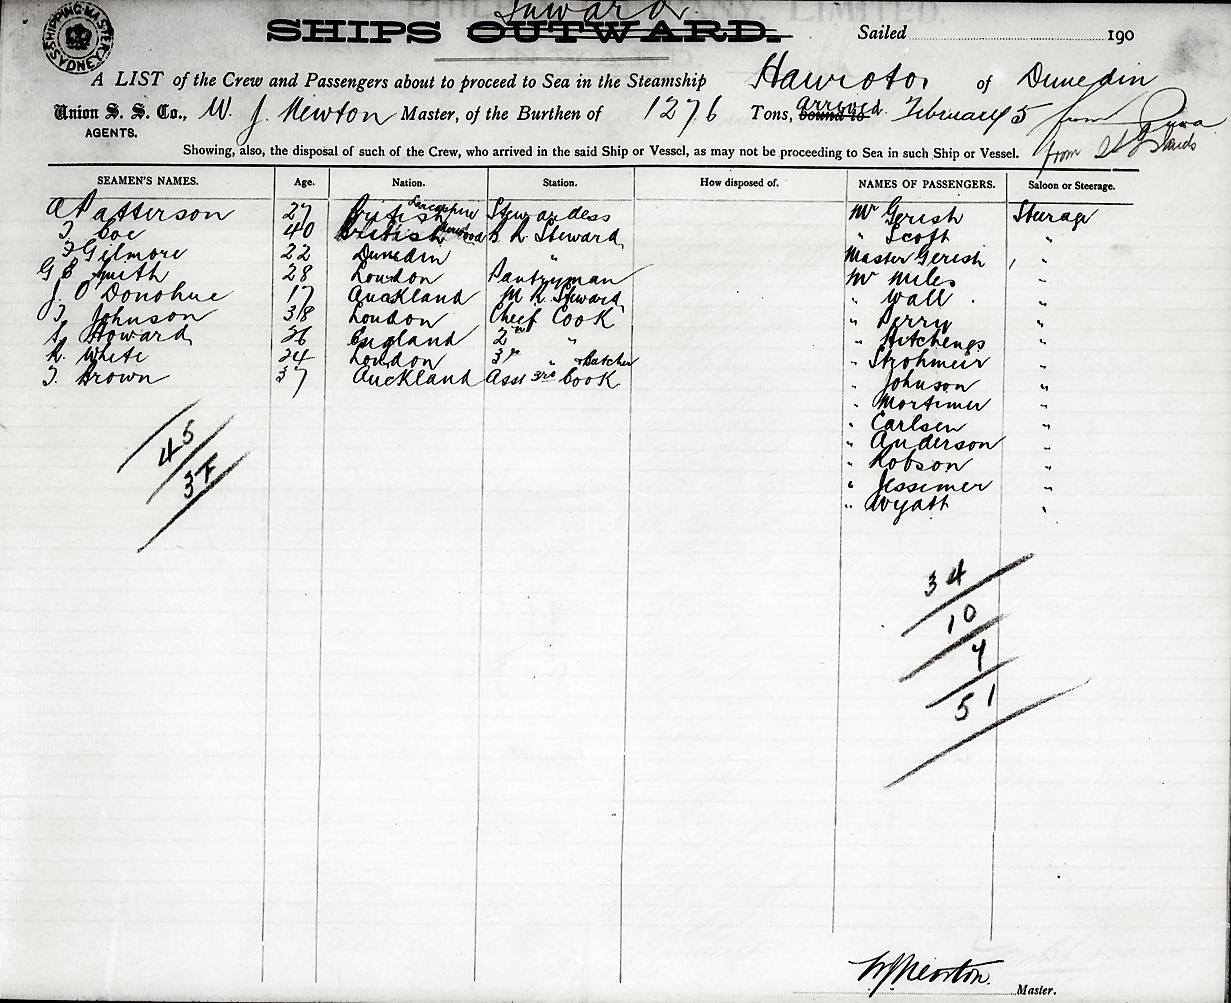 Inward
SHIPS OUTWARD.
Sailed 190
SHIPPING MASTER SYDNEY
A LIST of the Crew and Passengers about to proceed to Sea in the Steamship Hauroto, of Dunedin
Union S. S. Co., W. J. Newton Master, of the Burthen of 1276 Tons, bound to arrived February 5 from Suva
AGENTS.
Showing, also, the disposal of such of the Crew, who arrived in the said Ship or Vessel, as may not be proceeding to Sea in such Ship or Vessel. from Islands
SEAMEN'S NAMES. Age. Nation. Station. How disposed of. NAMES OF PASSENGERS. Saloon or Steerage.
A Patterson 27 British Lancashire Stewardess Mr Gerish Sterage
T Coe 40 British B. R. Steward " Scott "
T Gilmore 22 Dunedin " Master Gerish "
G E Smith 28 London Pantryman Mr Miles "
J. O'Donohue 17 Auckland M R Steward " Wall "
T. Johnson 38 London Cheef Cook " Perry "
S. Howard 26 England 2nd " " Hitchengs "
R. White 24 London 3rd " & Butcher " Strohmeir "
T. Brown 37 Auckland Asst 3rd Cook " Johnson "
" Mortimer "
" Carlsen "
" Anderson "
" Robson "
" Jessimer "
" Wyatt "
45
37
34
10
7
51
W J Newton
Master.